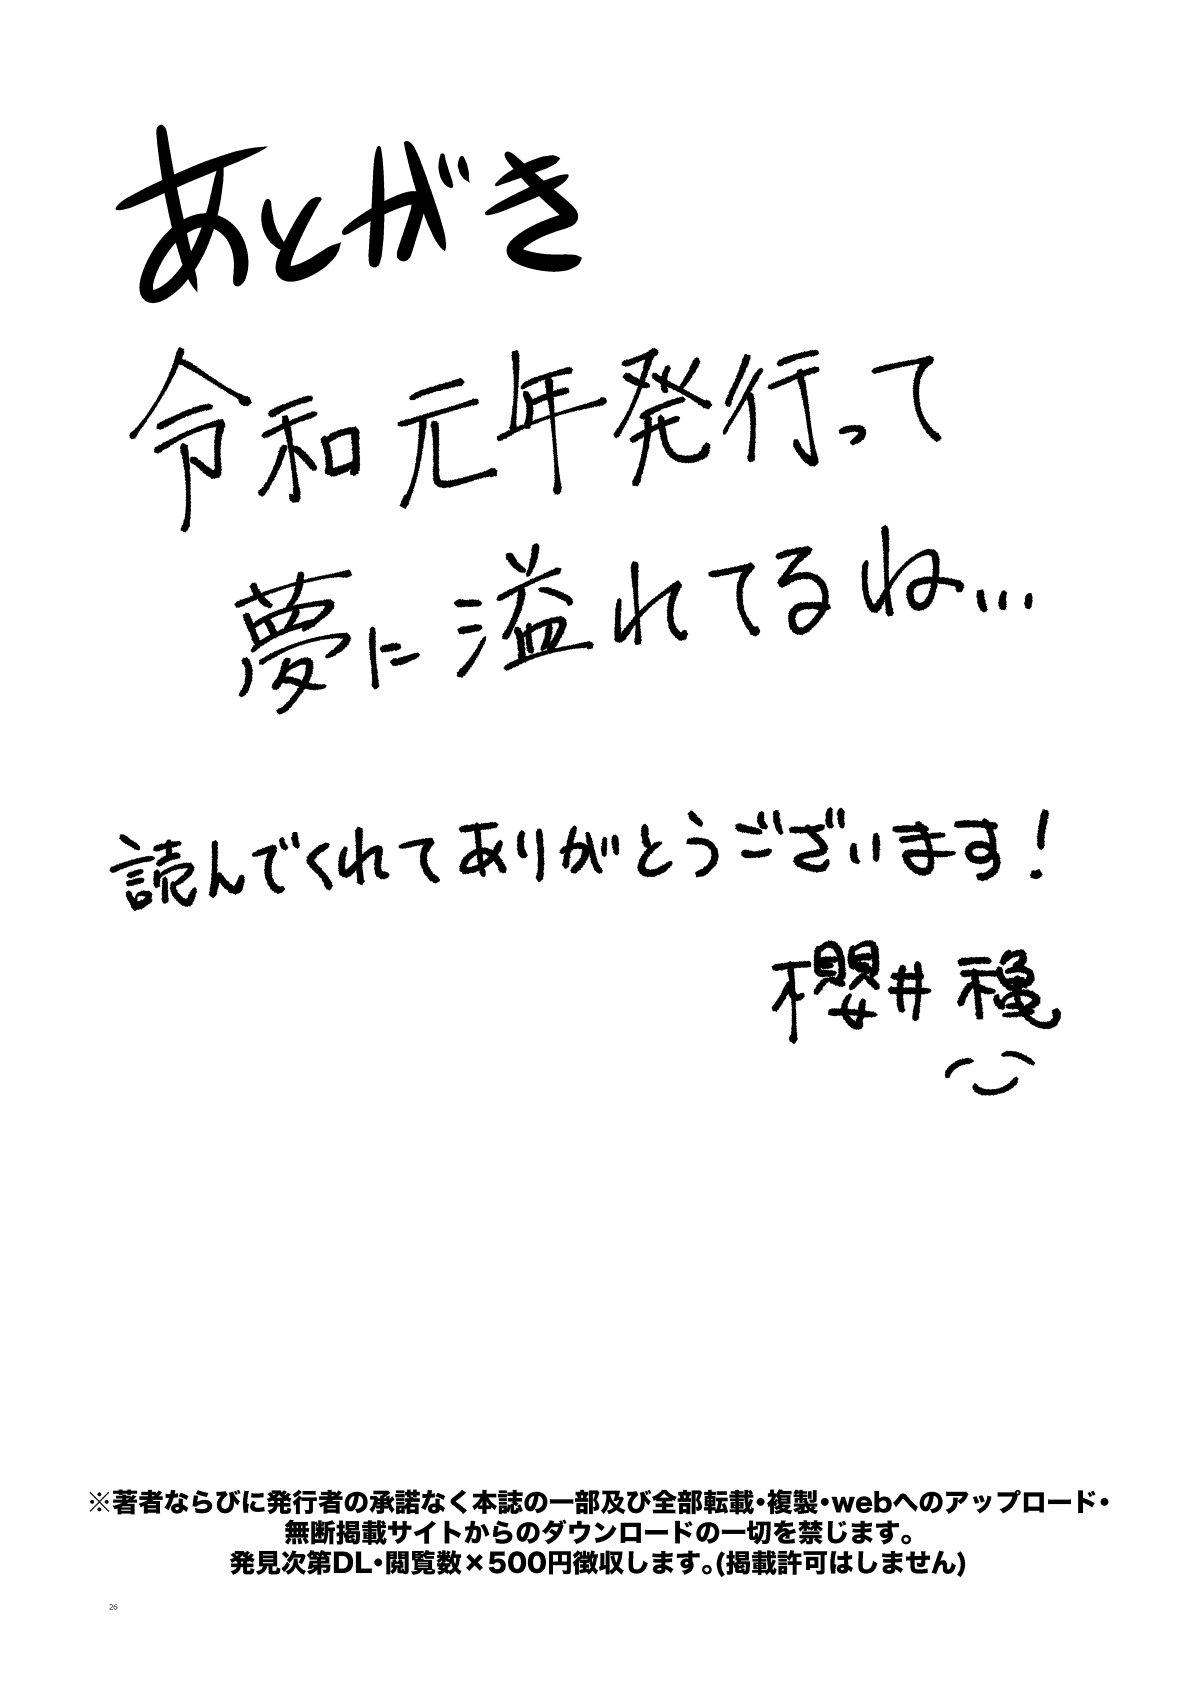 あとがき
令和元年発行って
夢に溢れてるね...
読んでくれてありがとうございます！
櫻井 穐
※著者ならびに発行者の承諾なく本誌の一部及び全部転載・複製・webへのアップロード・
無断掲載サイトからのダウンロードの一切を禁じます。
発見次第DL・閲覧数×500円徴収します。(掲載許可はしません)
26